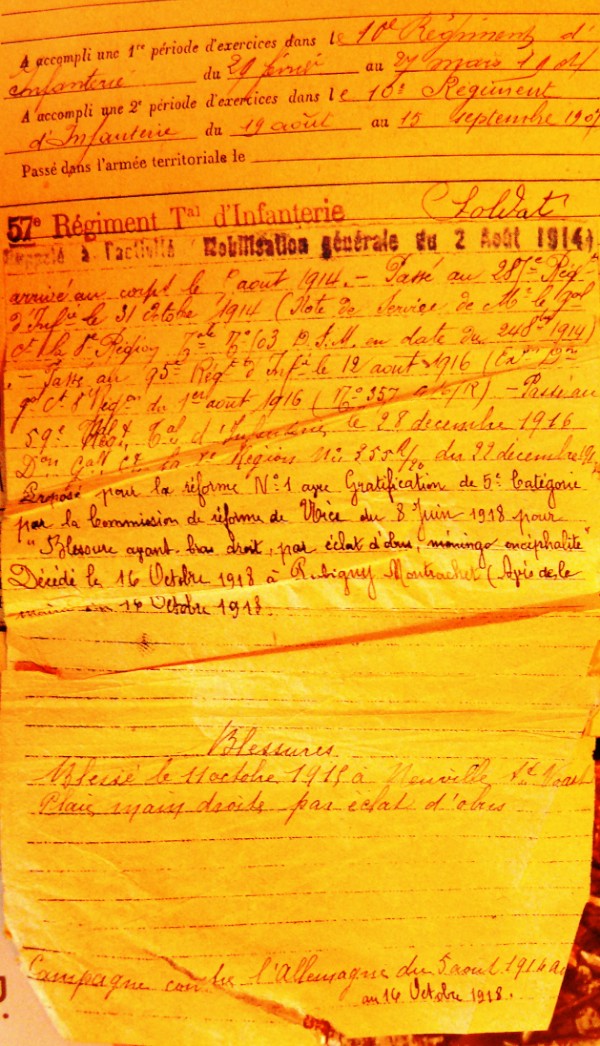 A accompli une 1re période d'exercices dans le 10e Régiment d'
Infanterie du 29 février au 27 mars 1904
A accompli une 2e période d'exercices dans le 10e Régiment
d'Infanterie du 19 août au 15 septembre 1907
Passé dans l'armée territoriale le
57e Régiment Tal d'Infanterie Soldat
Rappelé à l'activité Mobilisation générale du 2 Août 1914
arrivé au corps le août 1914. - Passé au 287e Rég
d'Infie le 31 Octobre 1914 (Note de Service de Mr le gal
Ct la 8e Région, No 103 en date du 1914)
- Passé au 95e Régt d'Infie le 12 août 1916
gal Ct 8e Région du 1er août 1916 (No 357 R) - Passé au
59e Régt Tal d'Infanterie le 28 décembre 1916
Don Gal Ct la Région No 255 du 22 décembre
Proposé pour la réforme No 1 avec Gratification de 5e Catégorie
par la Commission de réforme de Nice du 8 Juin 1918 pour
"Blessure avant-bras droit, par éclat d'obus, méningo encéphalite"
Décédé le 16 Octobre 1918 à Montrachet (Avis de le
maire du 16 Octobre 1918.
Blessures
Blessé le 11 octobre 1915 à Neuville St Vaast
Plaie main droite par éclat d'obus
Campagne contre l'Allemagne du 5 août 1914 au
au 16 Octobre 1918.